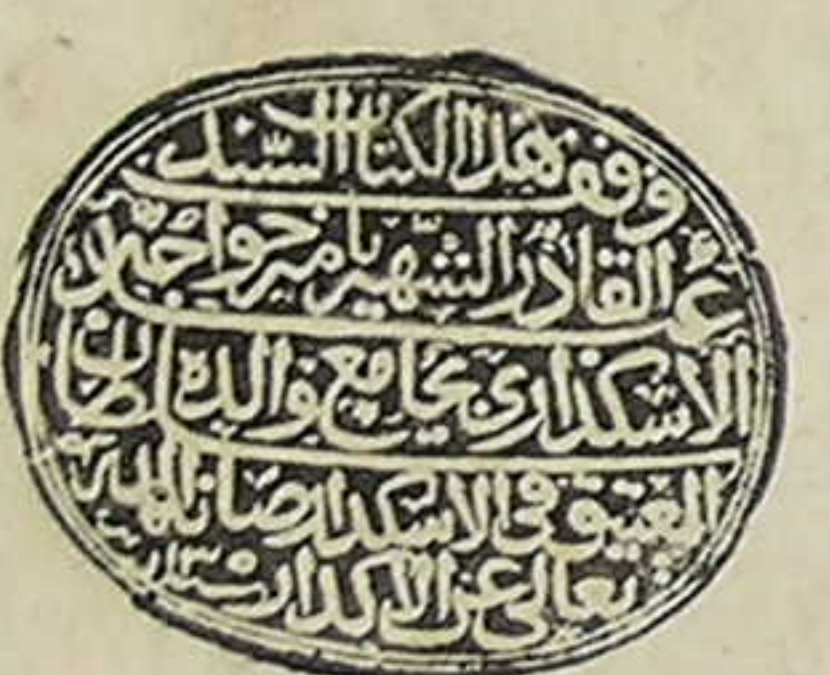 وقف هذا الكتاب السيد
عبد القادر الشهير بامير خواجه
الاسكداري بجامع والده سلطان
العتيق في الاسكدار صانها الله
تعالى عن الاكدار سنة